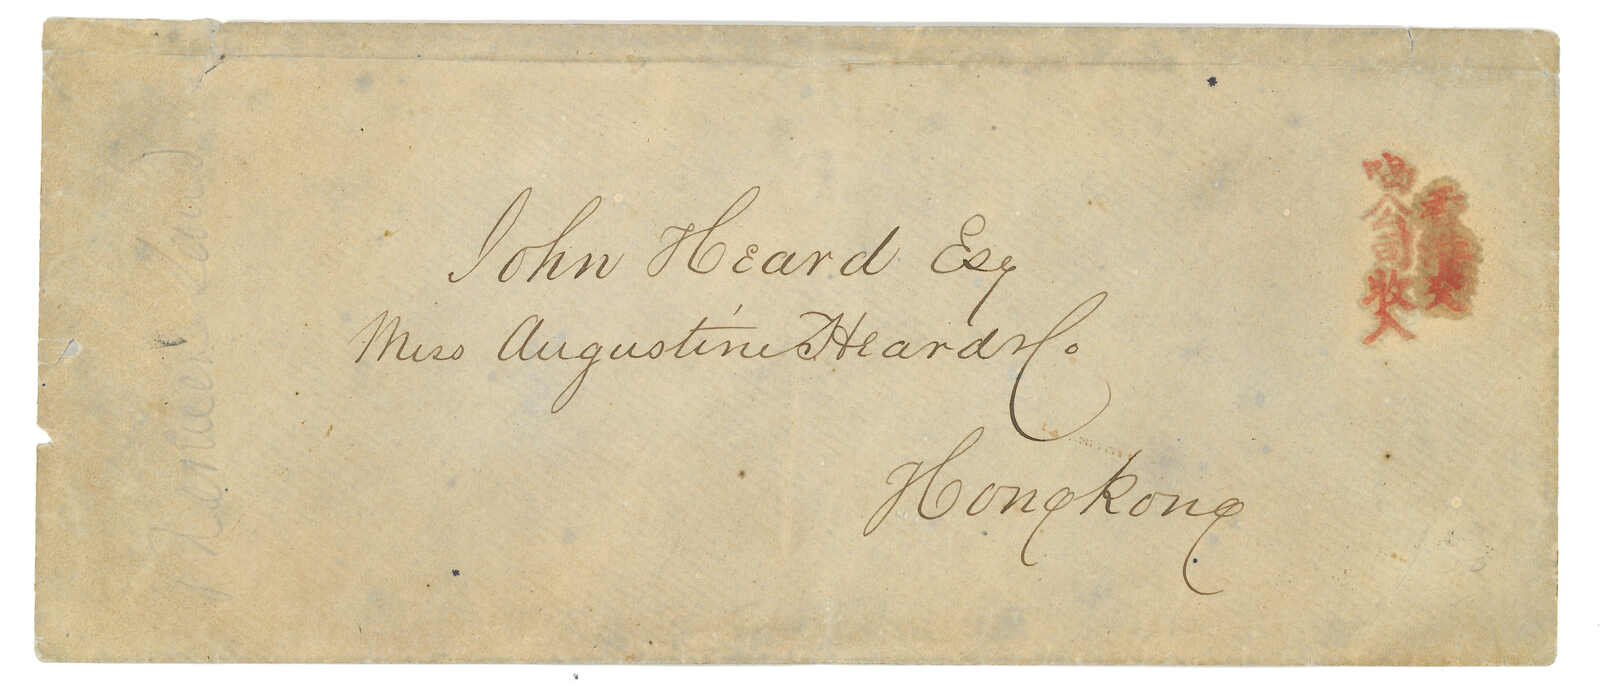 John Heard Esq
Mess Augustine Heard & Co.
Hongkong
公司收入